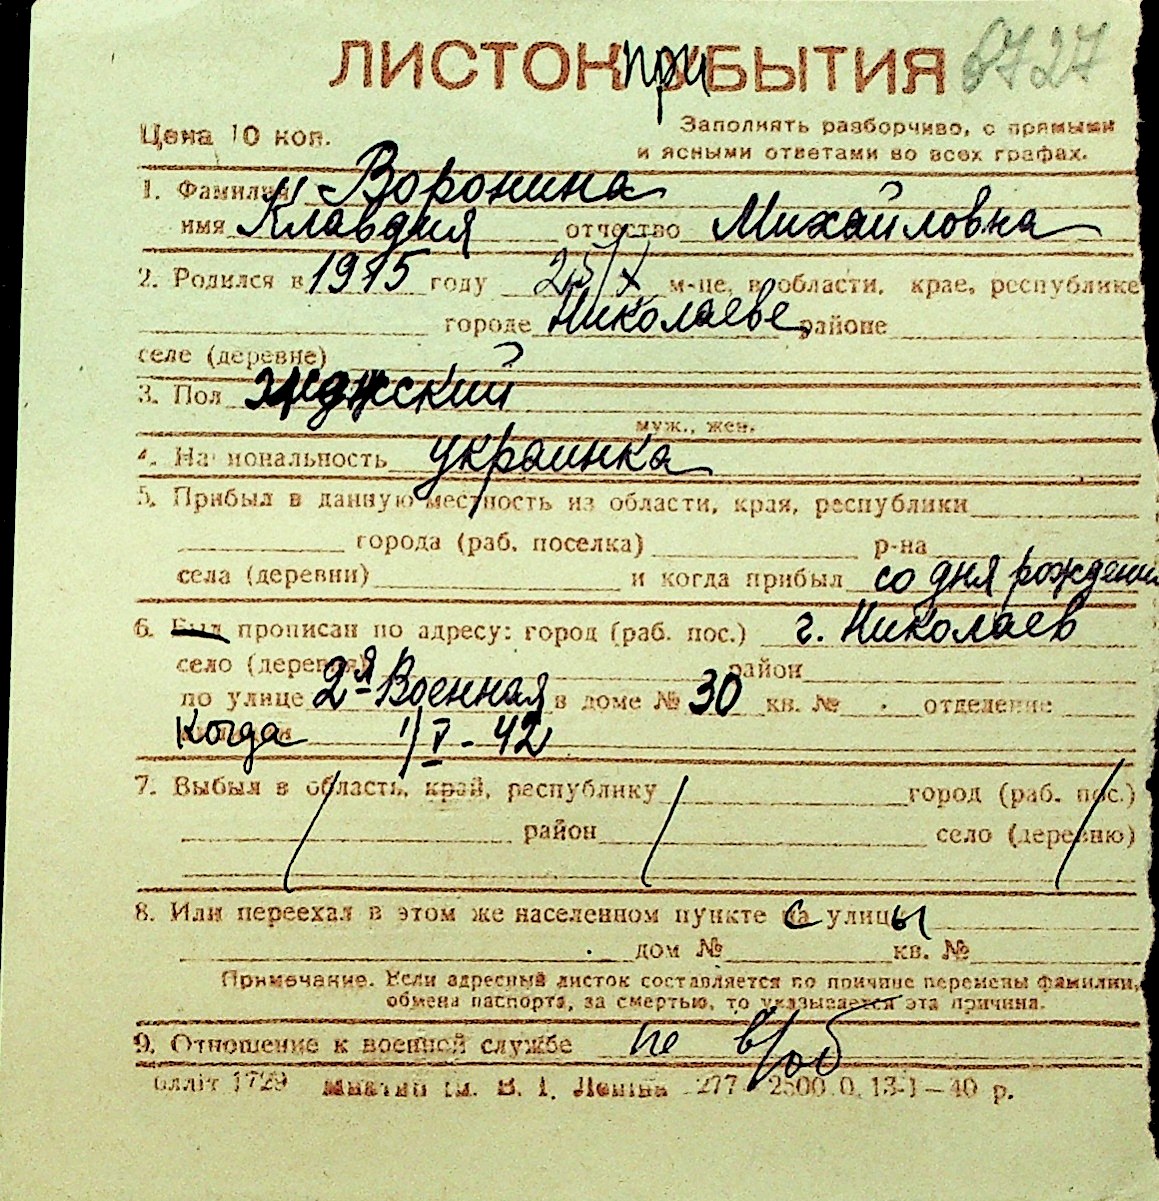 ЛИСТОК при БЫТИЯ 6727
Цена 10 коп.
Заполнять разборчиво, с прямыми
и ясными ответами во всех графах.
1. Фамилия Воронина
имя Клавдия отчество Михайловна
2. Родился в 1915 году 25/X м-це, в области, крае, республике
городе Николаеве районе
селе (деревне)
3. Пол женский
муж., жен.
4. Национальность украинка
5. Прибыл в данную местность из области, края, республики
города (раб. поселка) р-на
села (деревни) и когда прибыл со дня рождения
6. Был прописан по адресу: город (раб. пос.) г. Николаев
село (деревня) район
по улице 2я Военная в доме № 30 кв. № отделение
Когда 1/V-42
7. Выбыл в область, край, республику город (раб. пос.)
район село (деревню)
8. Или переехал в этом же населенном пункте с улицы
дом № кв. №
Примечание. Если адресный листок составляется по причине перемены фамилии,
обмена паспорта, за смертью, то указывается эта причина.
9. Отношение к военной службе не в/об
облліт 1729 им. В. І. Леніна 277 2500.0. 13-І—40 р.